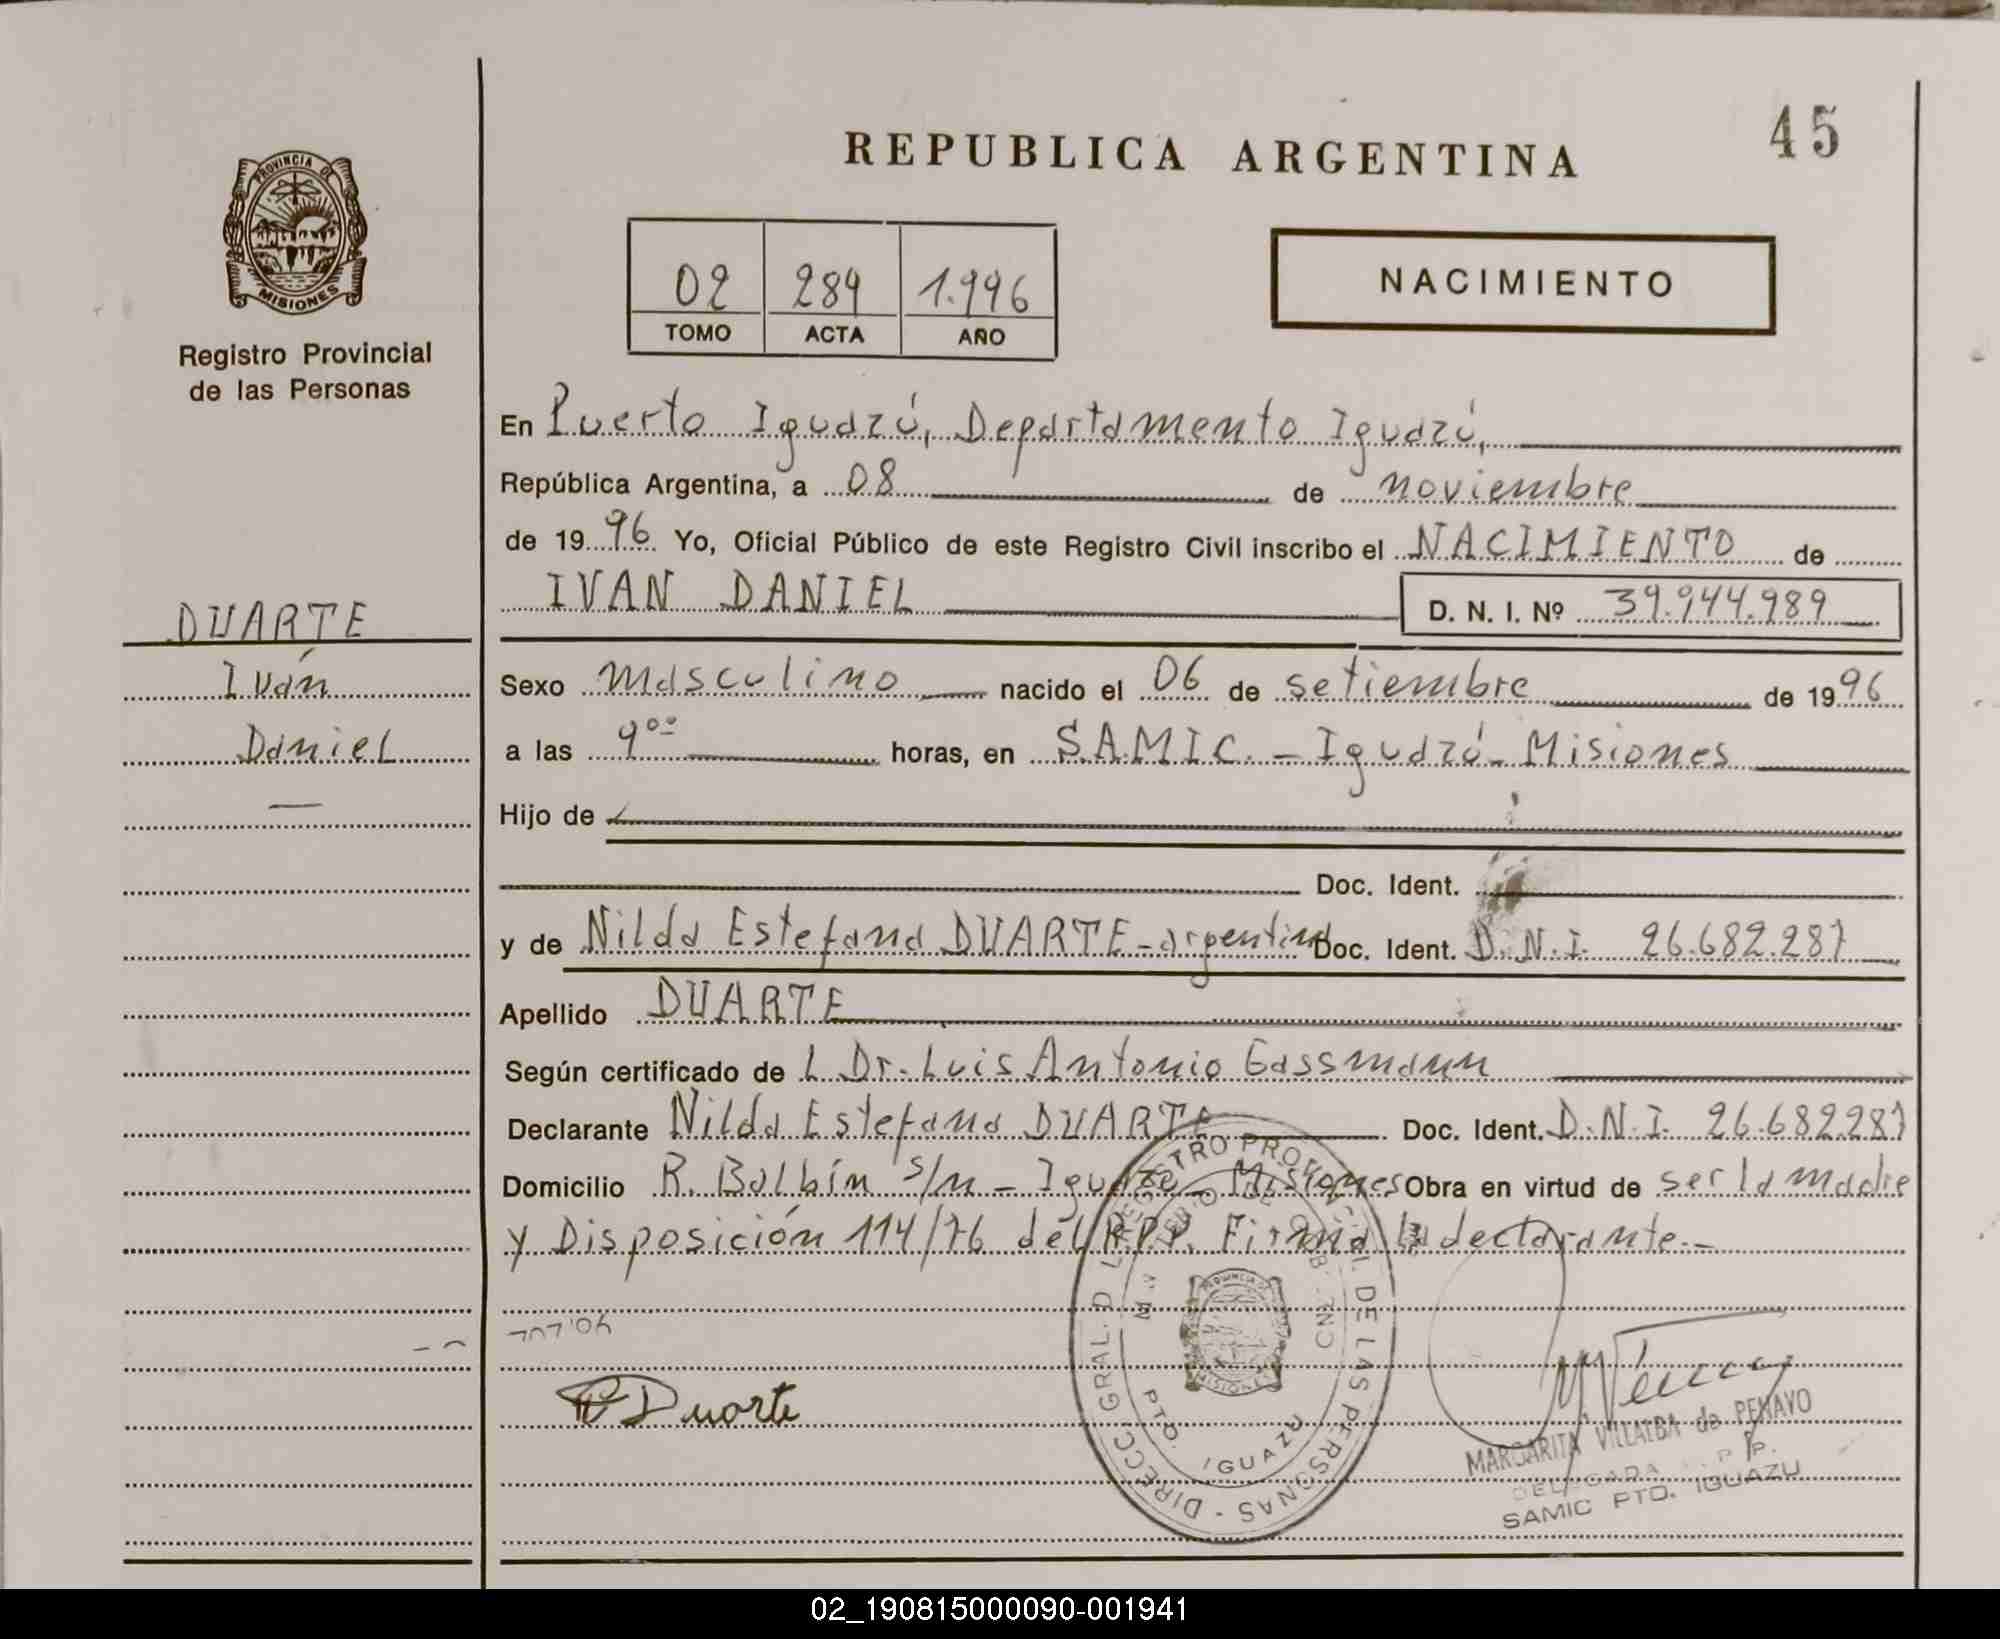 REPUBLICA ARGENTINA
45
PROVINCIA DE
MISIONES
Registro Provincial
de las Personas
02 289 1.996
TOMO ACTA AÑO
NACIMIENTO
En Puerto Iguazú, Departamento Iguazú,
República Argentina, a 08 de noviembre
de 1996 Yo, Oficial Público de este Registro Civil inscribo el NACIMIENTO de
IVAN DANIEL D. N. I. Nº 39.944.989
DUARTE
Iván
Daniel
Sexo masculino nacido el 06 de setiembre de 1996
a las 9°° horas, en S.A.M.I.C. - Iguazú - Misiones
Hijo de
Doc. Ident.
y de Nilda Estefana DUARTE - argentina Doc. Ident. D.N.I. 26.682.287
Apellido DUARTE
Según certificado de L Dr. Luis Antonio Gassmann
Declarante Nilda Estefana DUARTE Doc. Ident. D.N.I. 26.682.287
Domicilio R. Balbín s/n - Iguazú - Misiones Obra en virtud de ser la madre
y Disposición 114/76 del R.P.P. Firma la declarante.-
Duarte
DIRECC. GRAL. DEL REGISTRO PROVINCIAL DE LAS PERSONAS
PROVINCIA DE
MISIONES
PTO. IGUAZU
MARGARITA VILLALBA de PENAYO
DELEGADA R.P.P.
SAMIC PTO. IGUAZU
02_190815000090-001941